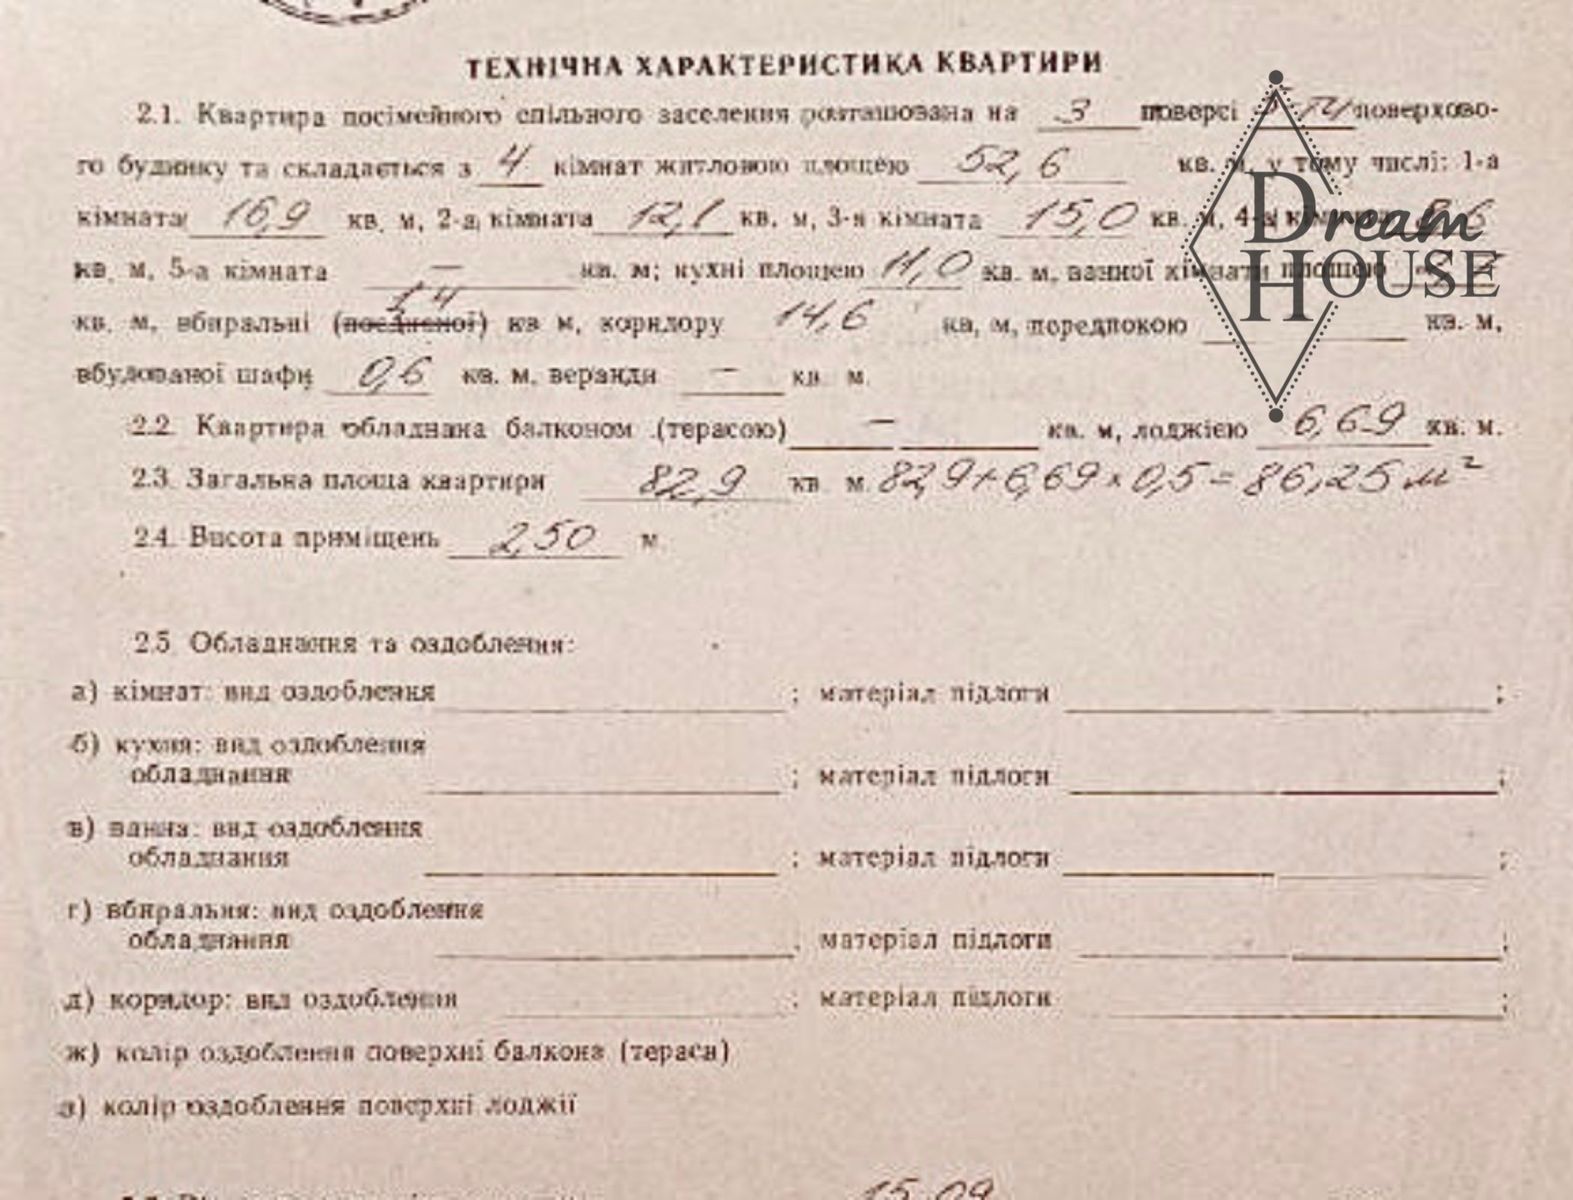 ТЕХНІЧНА ХАРАКТЕРИСТИКА КВАРТИРИ
2.1. Квартира посімейного спільного заселення розташована на 3 поверсі 5 ти поверхово-
го будинку та складається з 4 кімнат житловою площею 52,6 кв. м, у тому числі: 1-а
кімната 16,9 кв. м, 2-а кімната 12,1 кв. м, 3-я кімната 15,0 кв. м, 4-а кімната 8,6
кв. м, 5-а кімната — кв. м; кухні площею 11,0 кв. м, ванної кімнати площею
1,4
кв. м, вбиральні (поєднаної) кв м, коридору 14,6 кв, м, передпокою кв. м,
вбудованої шафи 0,6 кв. м. веранди — кв. м.
2.2. Квартира обладнана балконом (терасою) — кв. м, лоджією 6,69 кв. м.
2.3. Загальна площа квартири 82,9 кв. м. 82,9+6,69×0,5=86,25 м²
2.4. Висота приміщень 2,50 м.
2.5 Обладнання та оздоблення:
а) кімнат: вид оздоблення ; матеріал підлоги ;
б) кухня: вид оздоблення
обладнання ; матеріал підлоги ;
в) ванна: вид оздоблення
обладнання ; матеріал підлоги ;
г) вбиральня: вид оздоблення
обладнання ; матеріал підлоги ;
д) коридор: вид оздоблення ; матеріал підлоги ;
ж) колір оздоблення поверхні балкона (тераси)
з) колір оздоблення поверхні лоджії
Dream
HOUSE